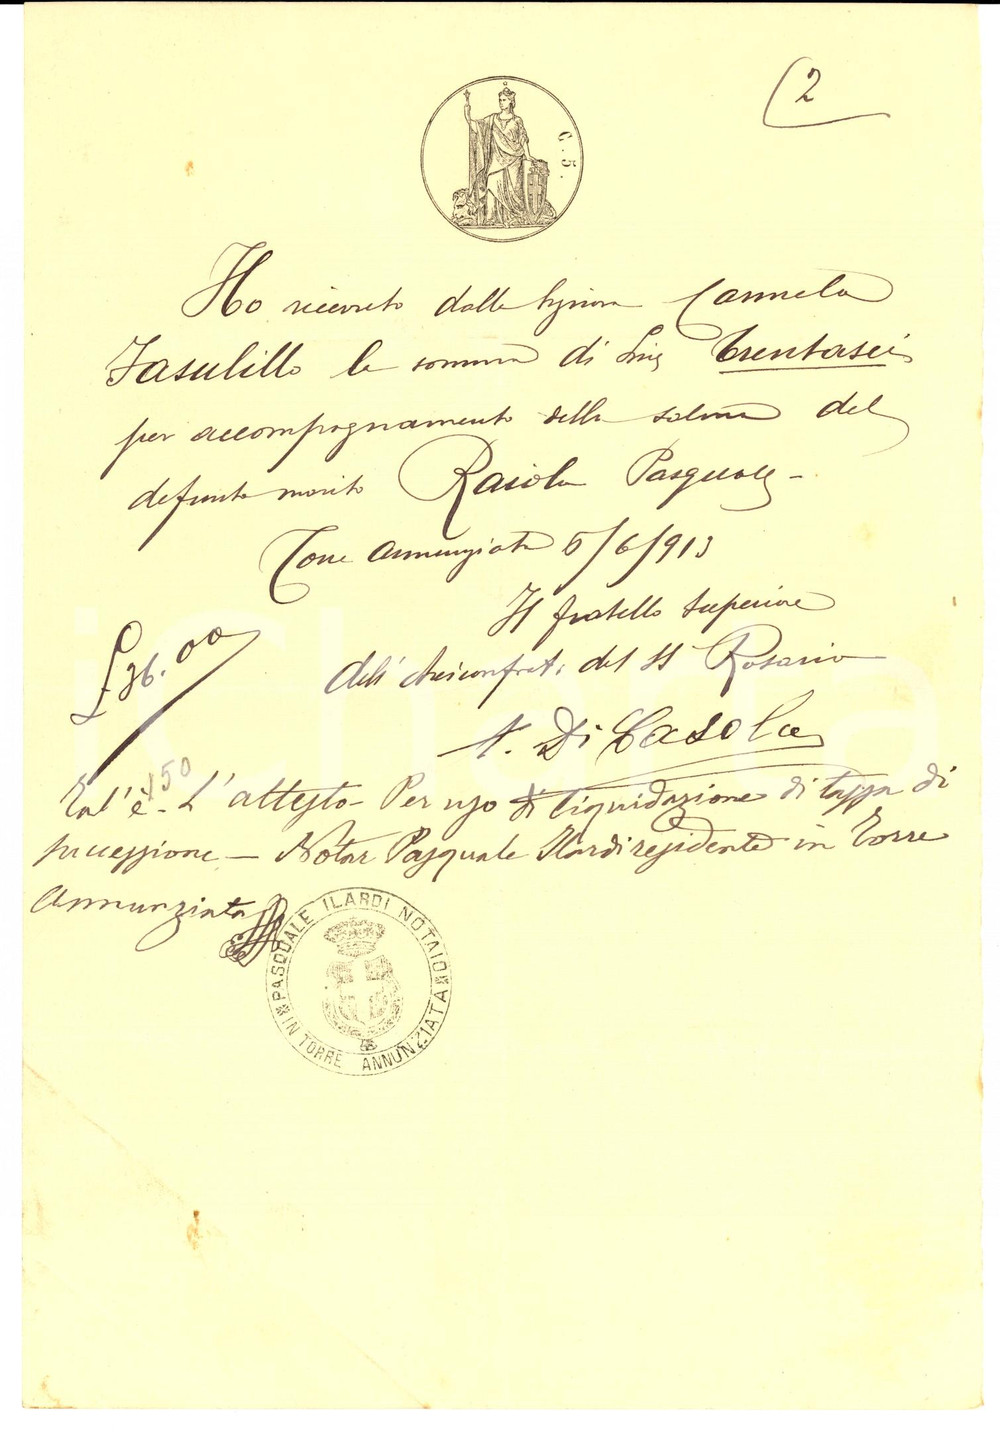 2
C. 5.
Ho ricevuto dalla Signora Carmela
Fasulillo la somma di Lire trentasei
per accompagnamento della salma del
defunto marito Raiola Pasquale -
Torre Annunziata 5/6/913
Il fratello Superiore
dell' Arciconfrat: del SS Rosario
A. Di Casola
L 36.00
150
Tal' è - L'attesto - Per uso di liquidazione di tassa di
successione - Notar Pasquale Ilardi residente in Torre
Annunziata
PASQUALE ILARDI NOTAIO
IN TORRE ANNUNZIATA